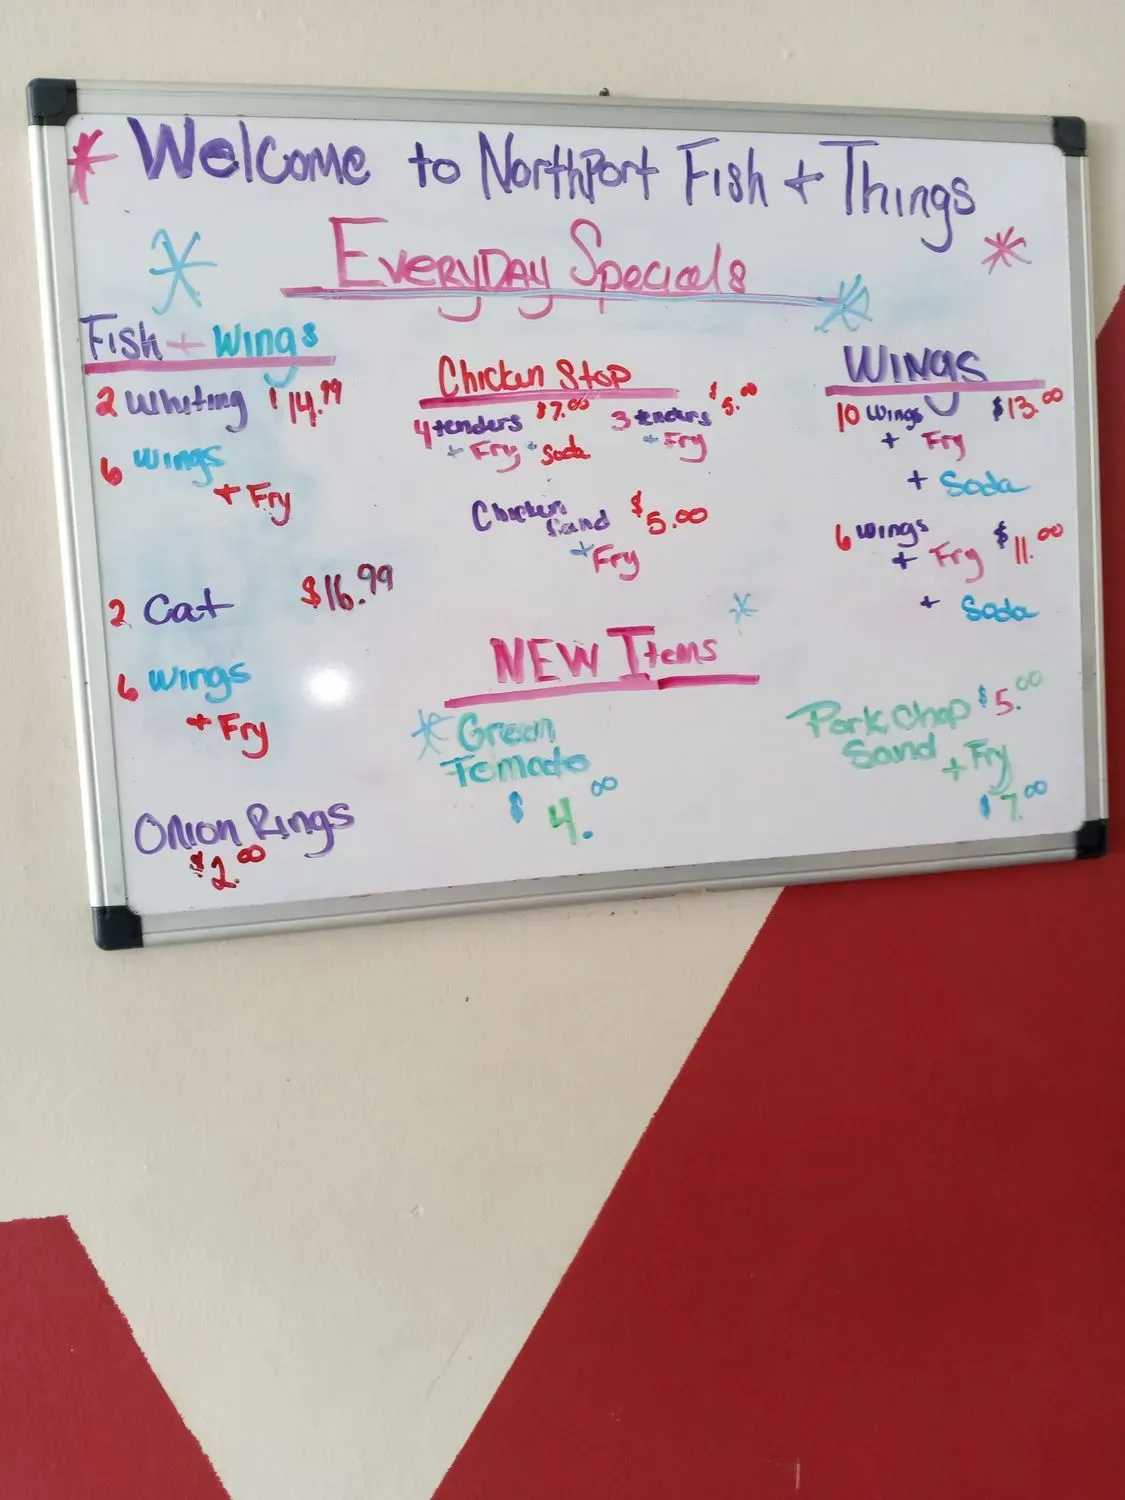 * Welcome to NorthPort Fish + Things
EVERYDAY Specials
Fish + Wings
2 Whiting $14.99
6 Wings
+ Fry
2 Cat $16.99
6 Wings
+ Fry
Onion Rings
$2.00
Chicken Stop
4 tenders $7.00
+ Fry + Soda
3 tenders $5.00
+ Fry
Chicken $5.00
Sand
+ Fry
WINGS
10 Wings $13.00
+ Fry
+ Soda
6 Wings $11.00
+ Fry
+ Soda
NEW Items
* Green
Tomato
$4.00
Pork Chop $5.00
Sand + Fry
$7.00